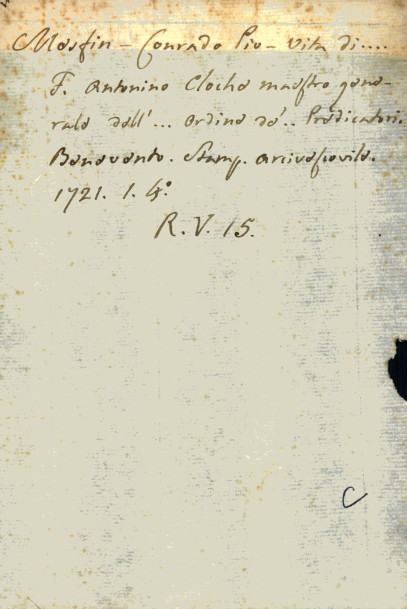 Mesfin - Conrado Pio - Vita di....
F. Antonino Cloche maestro gene-
rale dell'... ordine de'.. Predicatori.
Benevento. Stamp. arcivescovile.
1721. 1. 4.°
R. V. 15.
C